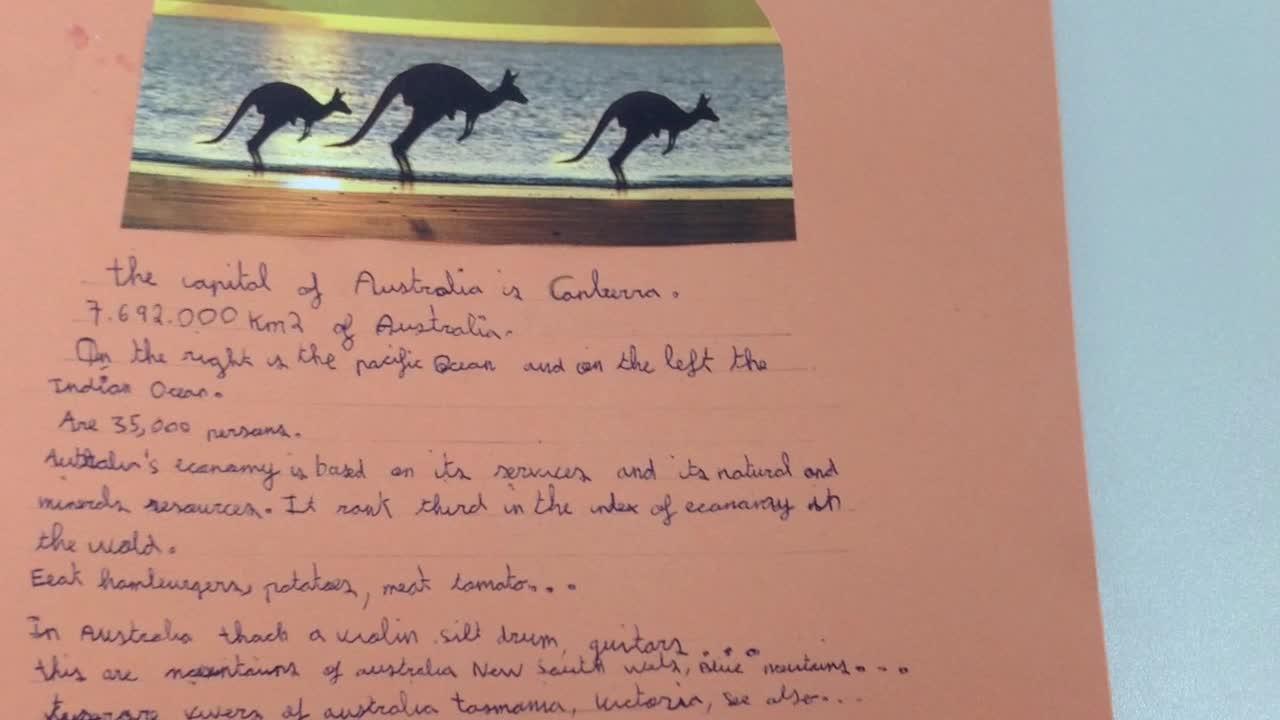 the capital of Australia is Canberra.
7.692.000 Km2 of Australia.
On the right is the pacific Ocean and on the left the
Indian Ocean.
Are 35,000 persons.
Australia's economy is based on its services and its natural and
minerals resources. It rank third in the index of economy in
the world.
Eeat hamburgers, potatoes, meat tomato...
In Australia a violin silt drum, guitars...
this are mountains of australia New South wals, Blue mountains...
rivers of australia tasmania, Victoria, see also...